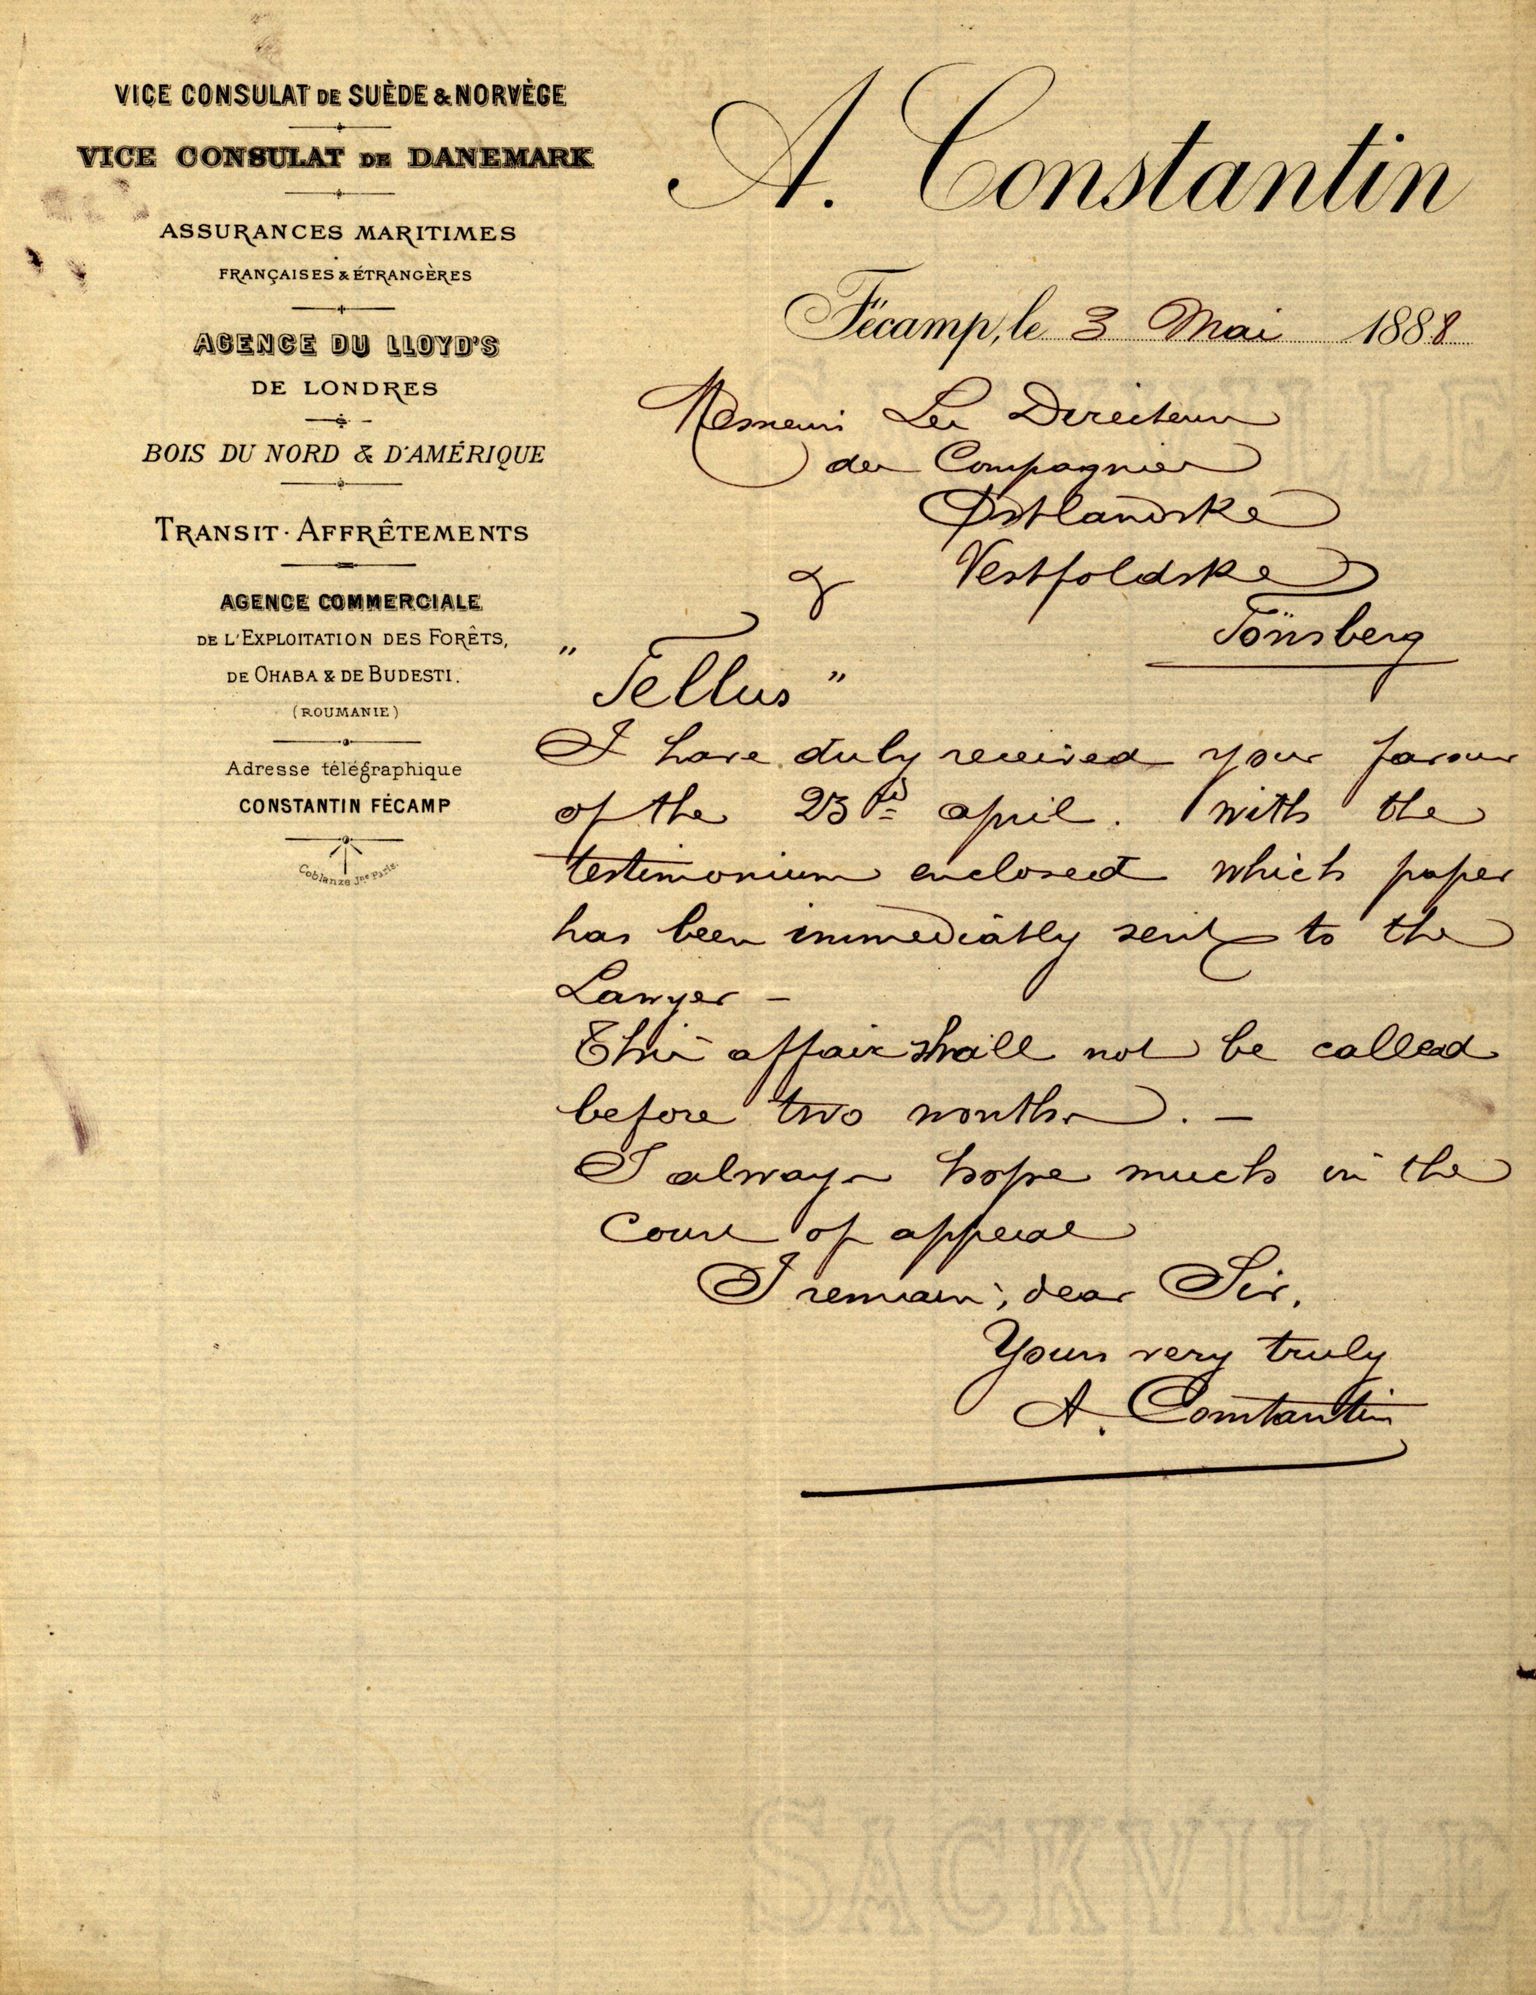 VICE CONSULAT DE SUÈDE & NORVÈGE
VICE CONSULAT DE DANEMARK
ASSURANCES MARITIMES
FRANÇAISES & ÉTRANGÈRES
AGENCE DU LLOYD'S
DE LONDRES
BOIS DU NORD & D'AMÉRIQUE
TRANSIT · AFFRÊTEMENTS
AGENCE COMMERCIALE
DE L'EXPLOITATION DES FORÊTS,
DE OHABA & DE BUDESTI.
(ROUMANIE)
Adresse télégraphique
CONSTANTIN FÉCAMP
Coblanze Jne Paris.
A. Constantin
Fécamp, le 3 Mai 1888
Messieurs Les Directeurs
des Compagnies
Østlandske
& Vestfoldske
Tönsberg
"Tellus"
I have duly received your favour
of the 23d april. with the
testimonium enclosed which paper
has been immediātly sent to the
Lawyer –
This affair shall not be called
before two months. –
I always hope much in the
Court of appeal
I remain, dear Sir,
Yours very truly
A. Constantin
SACKVILLE